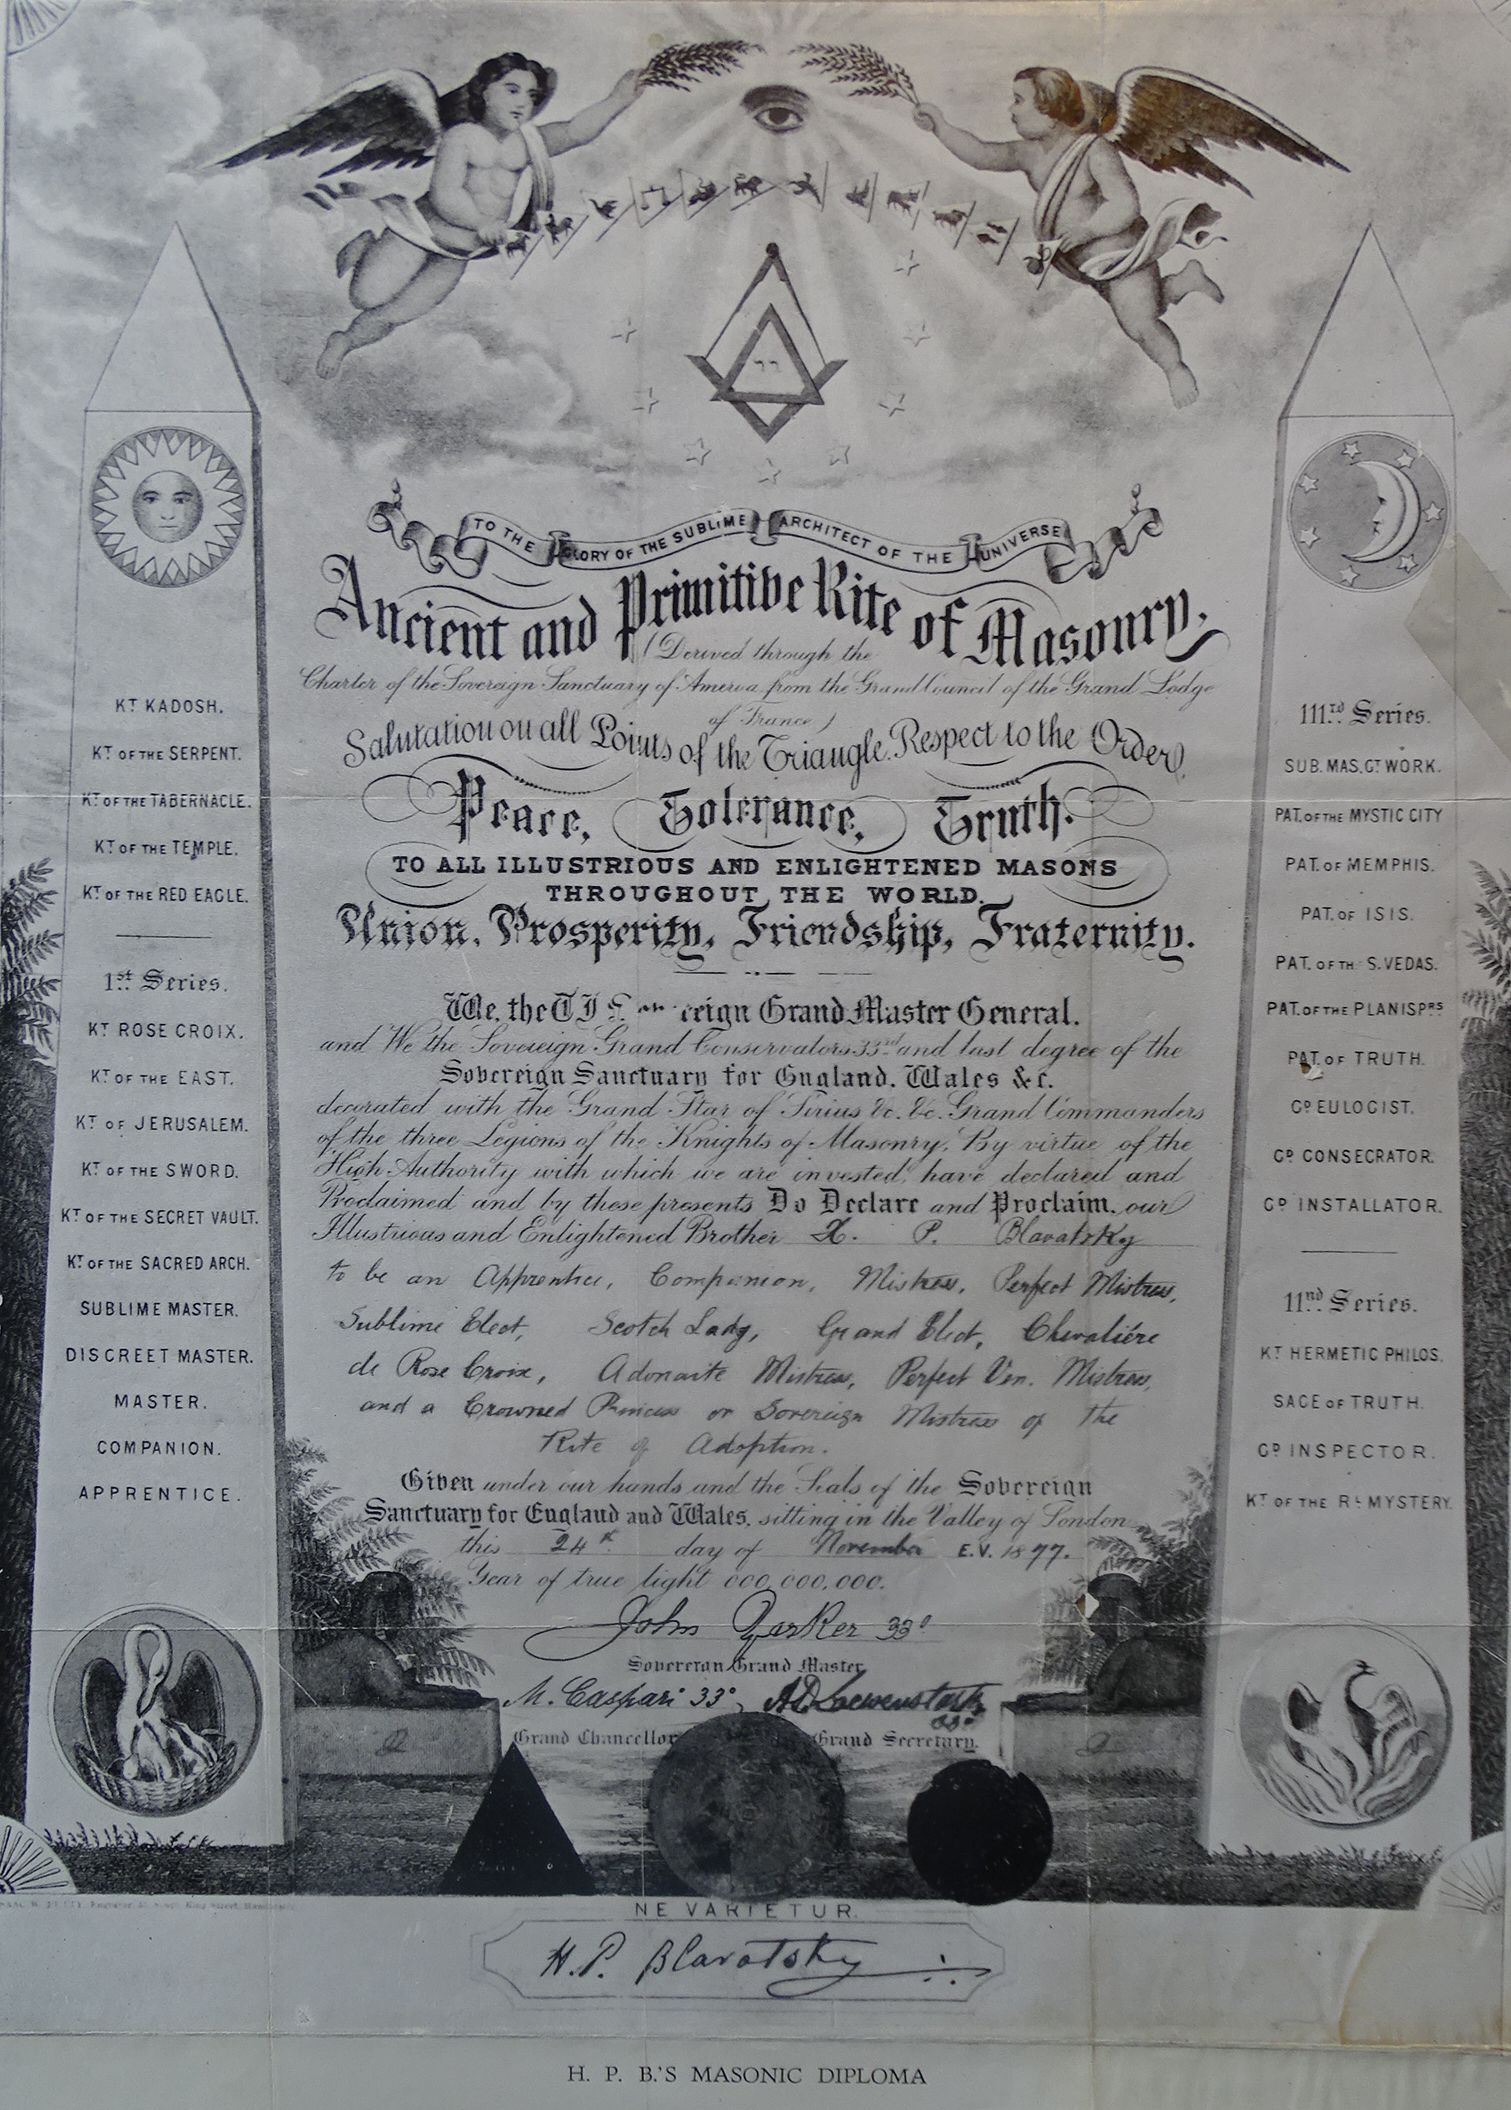 TO THE GLORY OF THE SUBLIME ARCHITECT OF THE UNIVERSE
Ancient and Primitive Rite of Masonry,
(Derived through the
Charter of the Sovereign Sanctuary of America from the Grand Council of the Grand Lodge
of France)
Salutation on all Points of the Triangle. Respect to the Order,
Peace, Tolerance, Truth.
TO ALL ILLUSTRIOUS AND ENLIGHTENED MASONS
THROUGHOUT THE WORLD.
Union, Prosperity, Friendship, Fraternity.
We, the T I eign Grand Master General,
and We the Sovereign Grand Conservators 33rd and last degree of the
Sovereign Sanctuary for England, Wales &c.
decorated with the Grand Star of Sirius &c. &c. Grand Commanders
of the three Legions of the Knights of Masonry. By virtue of the
High Authority with which we are invested, have declared and
Proclaimed and by these presents Do Declare and Proclaim, our
Illustrious and Enlightened Brother H. P. Blavatsky
to be an Apprentice, Companion, Mistress, Perfect Mistress,
Sublime Elect, Scotch Lady, Grand Elect, Chevaliére
de Rose Croix, Adonaite Mistress, Perfect Ven. Mistress,
and a Crowned Princess or Sovereign Mistress of the
Rite of Adoption.
Given under our hands and the Seals of the Sovereign
Sanctuary for England and Wales, sitting in the Valley of London
this 24th day of November E.V. 1877.
Year of true light 000,000,000.
John Yarker 33°
Sovereign Grand Master
M. Caspari 33°, AD Loewenstark
33°
Grand Chancellor Grand Secretary.
KT KADOSH.
KT OF THE SERPENT.
KT OF THE TABERNACLE.
KT OF THE TEMPLE.
KT OF THE RED EAGLE.
1st Series.
KT ROSE CROIX.
KT OF THE EAST.
KT OF JERUSALEM.
KT OF THE SWORD.
KT OF THE SECRET VAULT.
KT OF THE SACRED ARCH.
SUBLIME MASTER.
DISCREET MASTER.
MASTER.
COMPANION.
APPRENTICE.
111rd Series.
SUB. MAS. GT WORK.
PAT. OF THE MYSTIC CITY
PAT. OF MEMPHIS.
PAT. OF ISIS.
PAT. OF TH. S. VEDAS.
PAT. OF THE PLANISPRS
PAT. OF TRUTH.
GD EULOGIST.
GD CONSECRATOR.
GD INSTALLATOR.
11nd Series.
KT HERMETIC PHILOS.
SAGE OF TRUTH.
GD INSPECTOR.
KT OF THE RL MYSTERY.
NE VARIETUR.
H. P. Blavatsky
H. P. B.'S MASONIC DIPLOMA